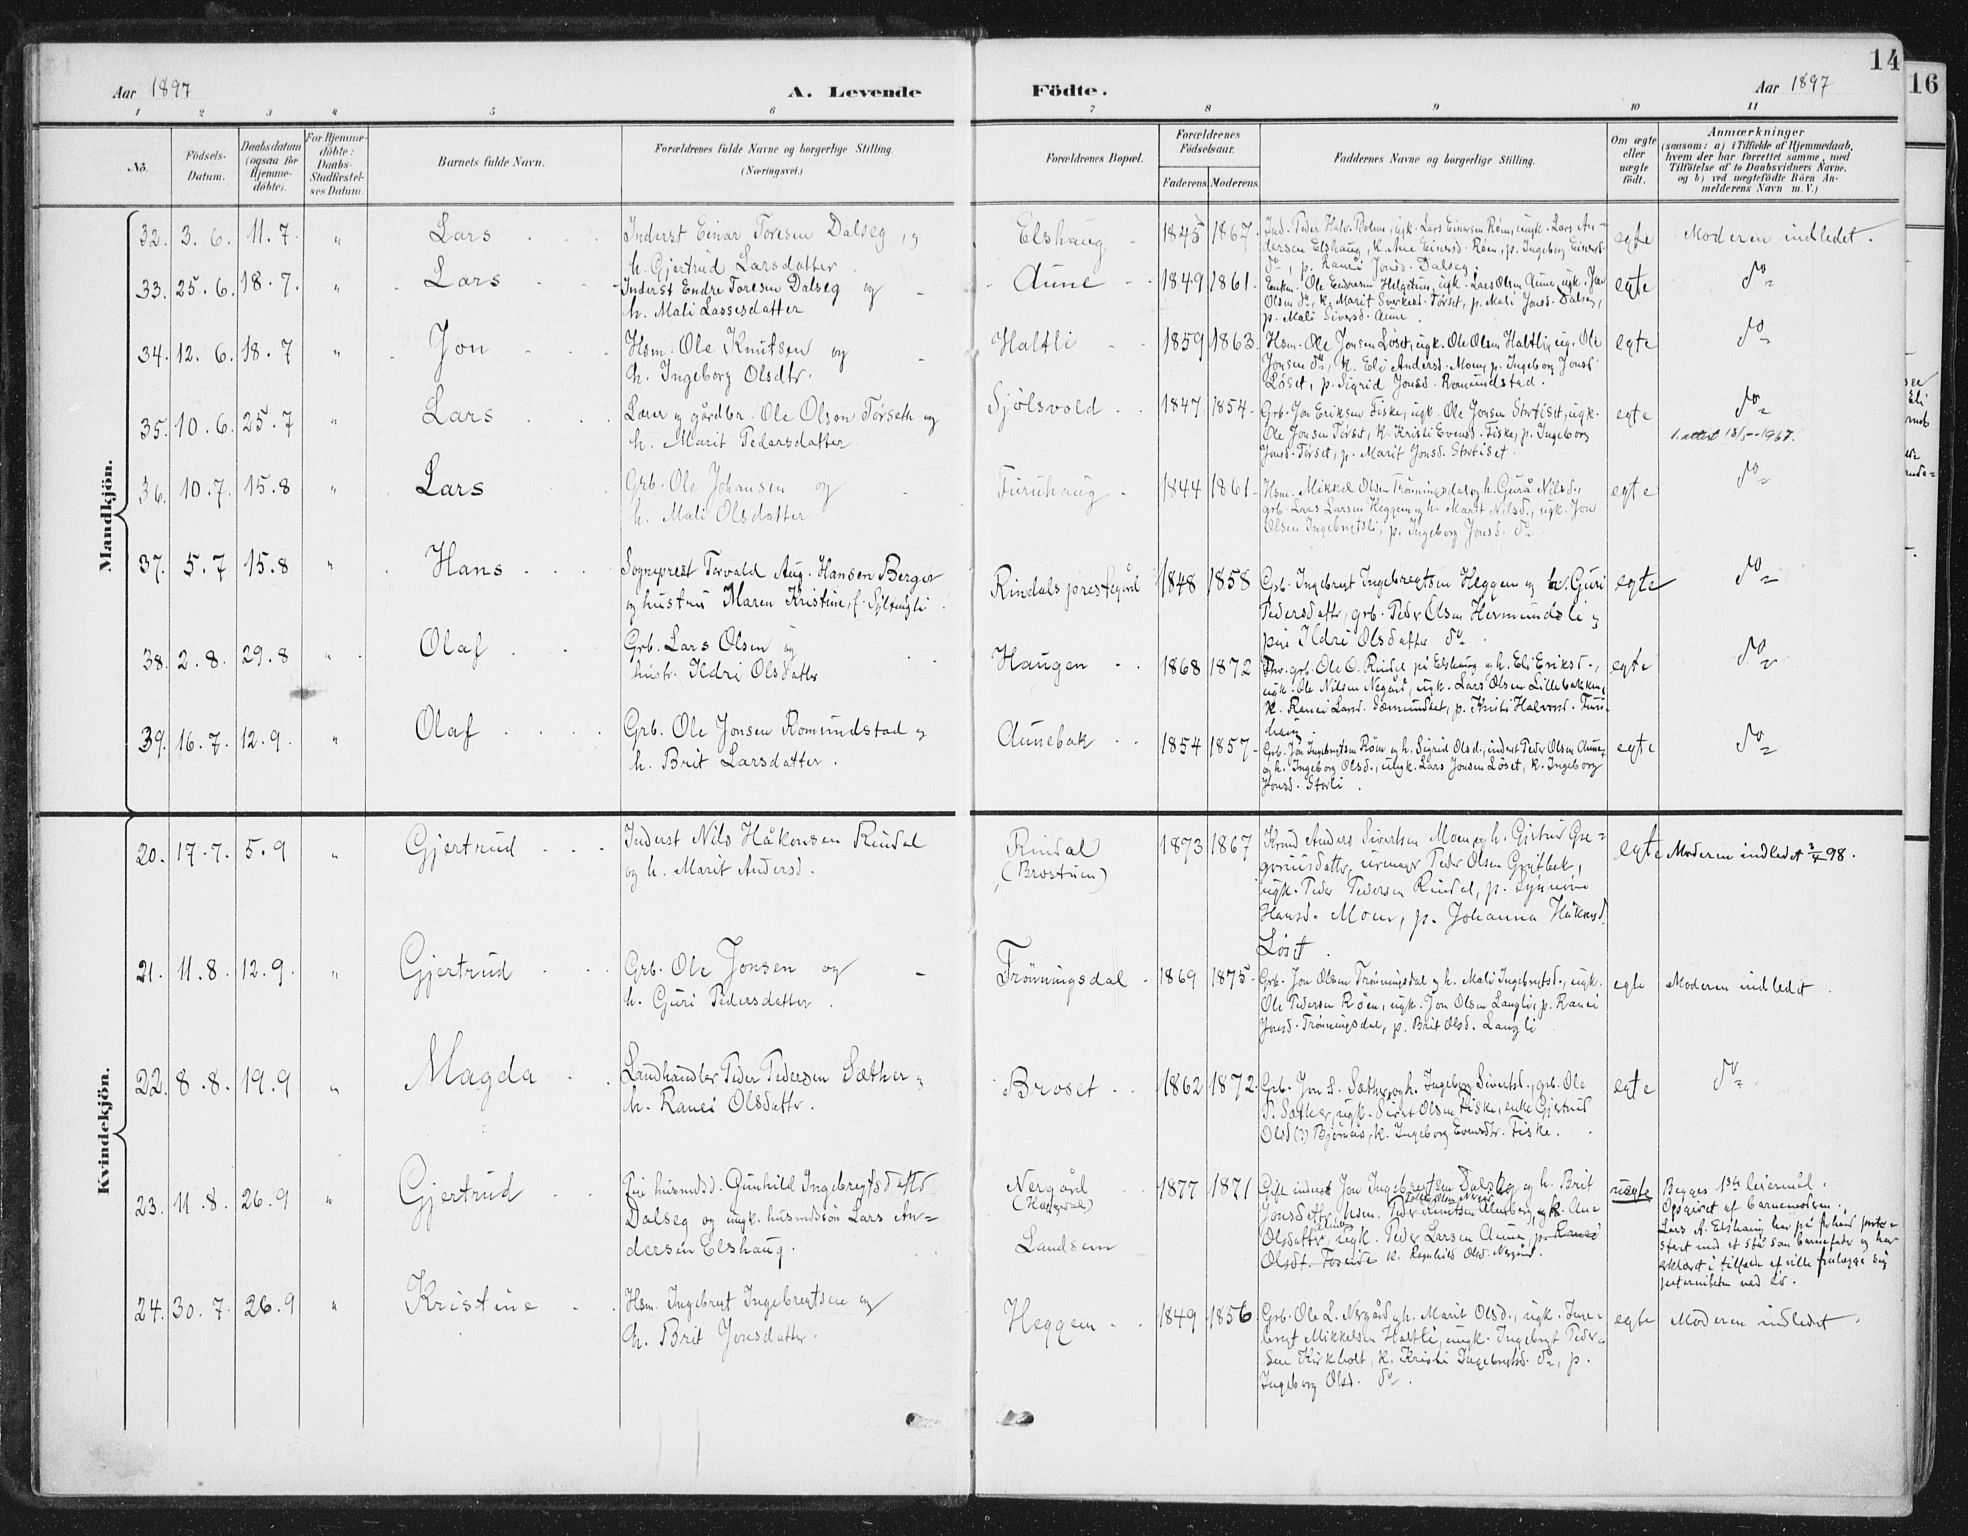 14
16
Aar 1897
A. Levende Födte.
Aar 1897
1 2 3 4 5 6 7 8 9 10 11
No.
Födsels-
Datum.
Daabsdatum
(ogsaa for
Hjemme-
döbte).
For Hjemme-
döbte:
Daabs-
Stadfæstel-
ses Datum.
Barnets fulde Navn.
Forældrenes fulde Navne og borgerlige Stilling.
(Næringsvei.)
Forældrenes Bopæl.
Forældrenes
Födselsaar.
Faderens. Moderens.
Faddernes Navne og borgerlige Stilling.
Om ægte
eller
uægte
födt.
Anmærkninger
(saasom: a) i Tilfælde af Hjemmedaab,
hvem der har forrettet samme, med
Tilföielse af to Daabsvidners Navne,
og b) ved uægtefödte Börn An-
melderens Navn m. V.)
Mandkjön.
32. 3. 6. 11. 7. " Lars
Inderst Einar Toresen Dalseg, og
h. Gjertrud Larsdatter
Elshaug 1845 1867
Ind. Peder Halv. Bolme, ugk. Lars Einarsen Röen, ungk. Lars An-
dersen Elshaug, k. Ane Einarsd. Röen, p. Ingeborg Einarsd.
do, p. Ranei Jonsd. Dalseg.
egte Moderen indledet.
33. 25. 6. 18. 7. " Lars
Inderst Endre Toresen Dalseg og
h. Mali Lassesdatter
Aune 1849 1861
Enkm. Ole Endresen Helgetun, ugk. Lars Olsen Aune, ugk. Jon
Olsen do, k. Marit Sverkesd. Torset, p. Mali Jonsd. Dalseg,
p. Mali Siversd. Aune.
egte do
34. 12. 6. 18. 7 " Jon
Hsm. Ole Knutsen og
h. Ingeborg Olsdtr.
Haltli 1859 1863
Hsm. Ole Jonsen Löset, ugk. Ole Olsen Haltli, ug. Ole
Jonsen do, k. Eli Andersd. Moen, p. Ingeborg Jonsd.
Löset, p. Sigrid Jonsd. Romundstad.
egte do
35. 10. 6. 25. 7 " Lars
Lærer og gårdbr. Ole Olsen Törseth og
h. Marit Pedersdatter
Sjölsvold 1847 1854
Grb. Jon Eriksen Fiske, ugk. Ole Jonsen Stortiset, ugk.
Ole Jonsen Törset, k. Kristi Evensd. Fiske, p. Ingeborg
Jonsd. Törset, p. Marit Jonsd. Stortiset.
egte do
1. attest 18/5-1967.
36. 10. 7. 15. 8 " Lars
Grb. Ole Johansen og
h. Mali Olsdatter
Furuhaug 1844 1861
Hsm. Mikkel Olsen Trönningsdal og h. Gurå Nilsd.,
grb. Lars Larsen Heggem og h. Marit Nilsd., ugk. Jon
Olsen Ingebrigtsli, p. Ingeborg Jonsd. do
egte do
37. 5. 7 15. 8 " Hans
Sogneprest Torvald Aug. Hansen Berger
og hustru Maren Kristine, f.
Rindals prestegård 1848 1858
Grb. Ingebrigt Ingebregtsen Heggem og h. Guri
Pedersdatter, grb. Peder Olsen Hermundsli og
pige Ildri Olsdatter do.
egte do
38. 2. 8. 29. 8 " Olaf
Grb. Lars Olsen og
hustr. Ildri Olsdatter
Haugen 1868 1872
Fhv. grb. Ole O. Rindal på Elshaug og h. Eli Eriksd.,
ugk. Ole Nilsen Negård, ugk. Lars Olsen Lillebakken,
k. Ranei Larsd. Sæmundset, p. Kristi Halvorsd. Furu-
haug.
egte do
39. 16. 7. 12. 9. " Olaf
Grb. Ole Jonsen Romundstad og
h. Brit Larsdatter.
Aunebak 1854 1857
Grb. Jon Ingebrigtsen Röen og h. Sigrid Olsd., inderst Peder Olsen Aune
og h. Ingeborg Olsd., ungk. Lars Jonsen Löset, k. Ingeborg
Jonsd. Storli.
egte do
Kvindekjön.
20. 17. 7. 5. 9 " Gjertrud
Inderst Nils Håkonsen Rindal
og h. Marit Andersd.
Rindal
(Brostuen)
1873 1867
Anders Sivertsen Moen og h. Gjertrud Gre-
goriusdatter, urmager Peder Olsen Grytbak,
ugk. Peder Pedersen Rindal, p. Synnöve
Hansd. Moen, p. Johanna Håkensd.
Löset.
egte Moderen indledet 3/4 98.
21. 11. 8. 12. 9. " Gjertrud
Grb. Ole Jonsen og
h. Guri Pedersdatter.
Trönningsdal 1869 1875
Grb. Jon Olsen Trönningsdal og h. Mali Ingebregtsd., ugk.
Ole Pedersen Röen, ugk. Jon Olsen Langli, p. Ranei
Jonsd. Trönningsdal, p. Brit Olsd. Langli
egte Moderen indledet.
22. 8. 8. 19. 9 " Magda
Landhandler Peder Pedersen Sæther og
h. Ranei Olsdatter.
Broset 1862 1872
Grb. Jon L. Sæther og h. Ingeborg Sivertsd., grb. Ole
P. Sæther, ugk. Sivert Olsen Fiske, enke Gjertrud
Olsd (?) Bjørnås, k. Ingeborg Evensdtr. Fiske.
egte do
23. 11. 8. 26. 9 " Gjertrud
Pige husmdsd. Gunhild Ingebregtsdatter
Dalseg og ungk. husmdssön Lars An-
dersen Elshaug.
Nergård
(Haugdal)
Landsem
1877 1871
Gift inderst Jon Ingebregtsen Dalseg og h. Brit
Jonsdatter, hsm. Peder Knutsen Aune ugk. Ane
Olsdatter, ugk. Peder Larsen Aune, p. Ranei
Olsdt. Foseide k. Ragnhild Olsd. Nergård.
uægte Begges 1ste leiermål.
Opgivet af barnemoderen.
Lars A. Elshaug har på forhånd prote-
stert med et som barnefader og har
erklært i tilfælde af ville fralægge sig
paterniteten ved ed.
24. 30. 7. 26. 9 " Kristine
Hsm. Ingebrigt Ingebregtsen og
h. Brit Jonsdatter.
Heggem 1849 1856
Grb. Ole L. Nergård og h. Marit Olsd., ugk. Inge-
brigt Mikkelsen Haltli, ungk. Ingebrigt Peder-
sen Kirkholt, k. Kristi Ingebrigtsd. do, p.
Ingeborg Olsd. do.
egte Moderen indledet.